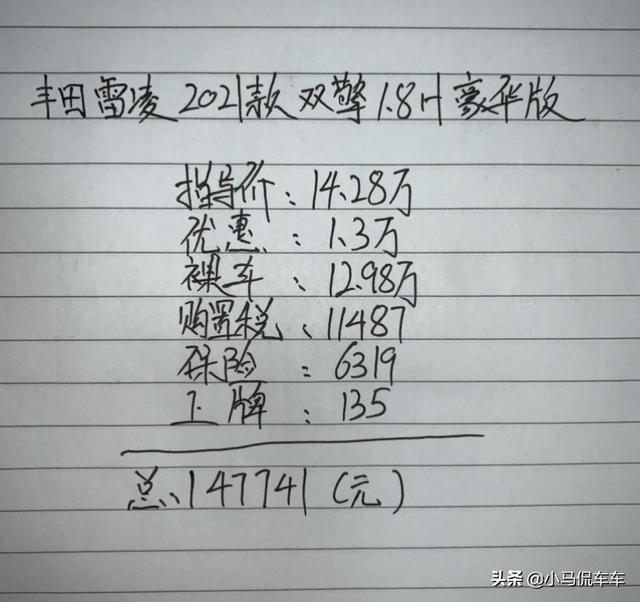 丰田雷凌2021款双擎1.8H豪华版
指导价:14.28万
优惠:1.3万
裸车:12.98万
购置税:11487
保险:6319
上牌:135
总:147741(元)
头条 @小马侃车车